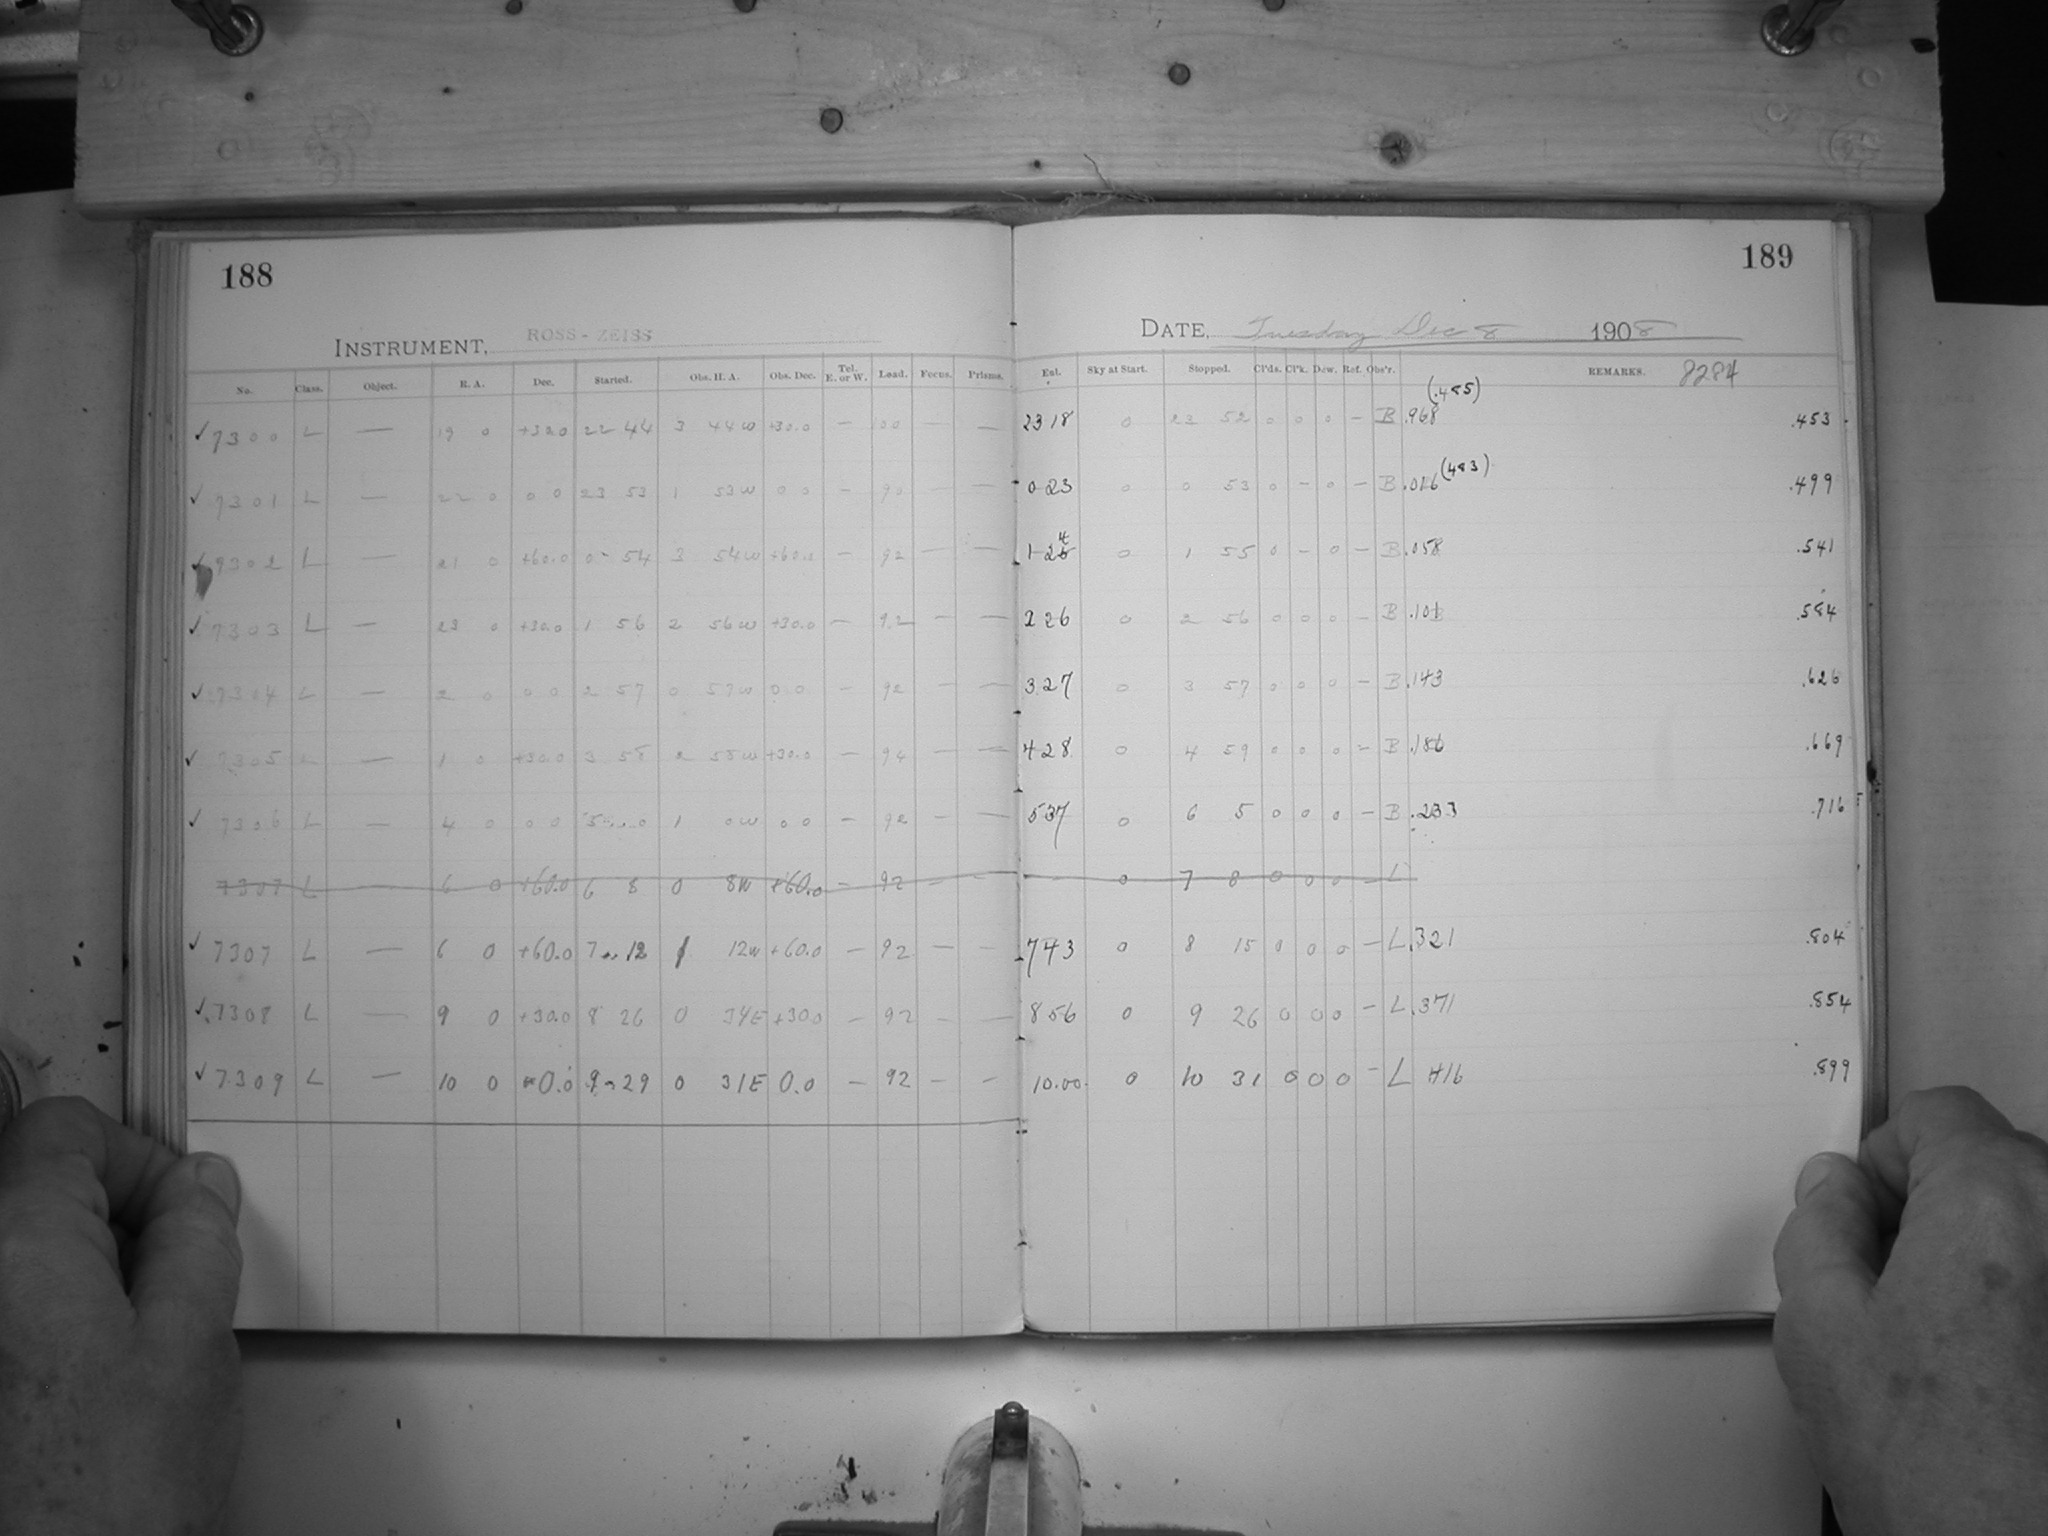 188
189
INSTRUMENT, ROSS-ZEISS
DATE, Tuesday Dec 8 1908
No. Class. Object. R. A. Dec. Started. Obs. H. A. Obs. Dec. Tel. E. or W. Load. Focus. Prisms. Ent. Sky at Start. Stopped. Cl'ds. Cl'k. Dew. Ref. Obs'r. REMARKS. 8284
(.485)
✓ 7300 L — 19 0 +30.0 22 44 3 44W +30.0 — — — 23 18 0 23 52 0 0 0 — B .968 .453
(483)
✓ 7301 L — 22 0 0 0 23 53 1 53W 0 0 — 90 — — 0 23 0 0 53 0 — 0 — B .016 .499
✓ 7302 L — 21 0 +60.0 0 54 3 54W +60.0 — 92 — — 1 24 0 1 55 0 — 0 — B .058 .541
✓ 7303 L — 23 0 +30.0 1 56 2 56W +30.0 — 92 — — 2 26 0 2 56 0 0 0 — B .101 .584
✓ 7304 L — 2 0 0 0 2 57 0 57W 0 0 — 92 — — 3 27 0 3 57 0 0 0 — B .143 .626
✓ 7305 L — 1 0 +30.0 3 58 2 58W +30.0 — 94 — — 4 28 0 4 59 0 0 0 — B .186 .669
✓ 7306 L — 4 0 0 0 5 0 1 0W 0 0 — 92 — — 5 37 0 6 5 0 0 0 — B .233 .716
7307 L 6 0 +60.0 6 8 0 8W +60.0 — 92 — — 0 7 8 0 0 0 — L
✓ 7307 L — 6 0 +60.0 7 12 1 12W +60.0 — 92 — — 7 43 0 8 15 0 0 0 — L .321 .804
✓ 7308 L — 9 0 +30.0 8 26 0 34E +30.0 — 92 — — 8 56 0 9 26 0 0 0 — L .371 .854
✓ 7309 L — 10 0 0.0 9 29 0 31E 0.0 — 92 — — 10.00 0 10 31 0 0 0 — L 416 .899